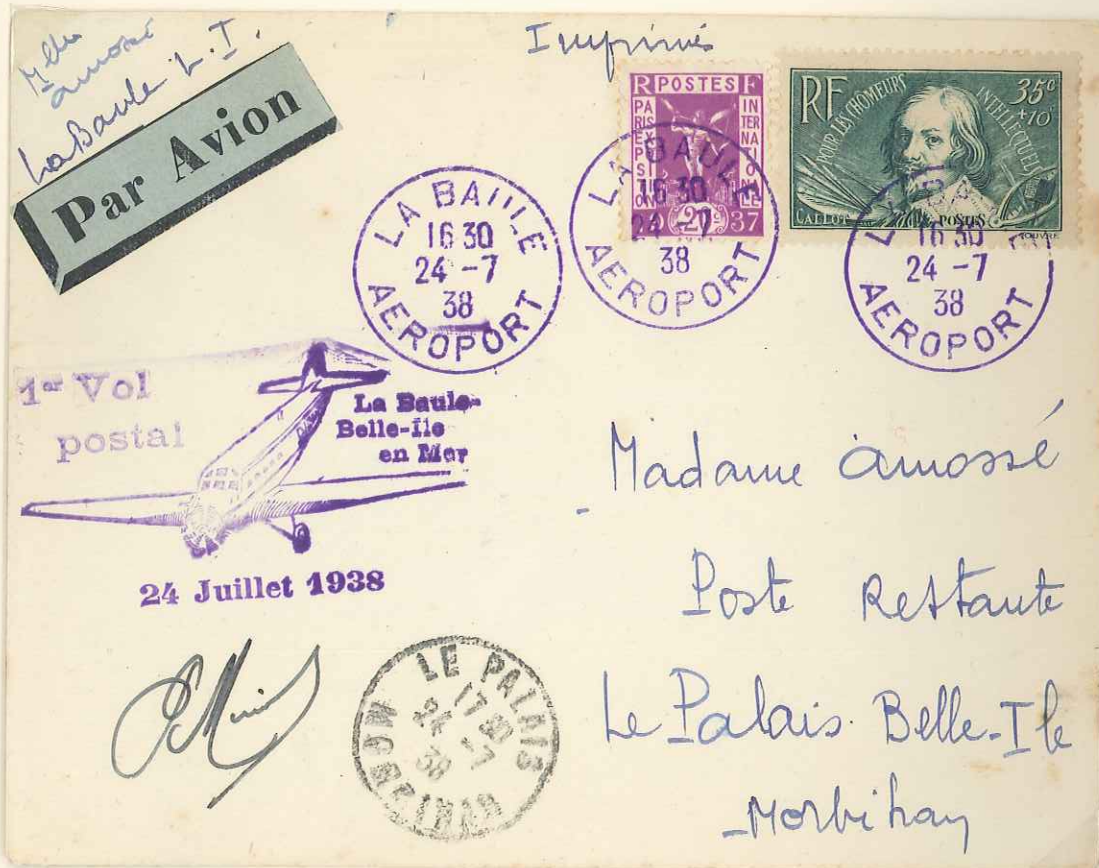 Mlle
amossé
La Baule L. I.
Par Avion
Imprimés
RF POSTES
PARIS EXPOSITION
INTERNATIONALE
20c 37
RF
POUR LES CHOMEURS INTELLECTUELS
35c
+10c
CALLOT
POSTES
LOUVRE
LA BAULE
16 30
24 -7
38
AEROPORT
LA BAULE
16 30
24 -7
38
AEROPORT
LA BAULE
16 30
24 -7
38
AEROPORT
1er Vol
postal
La Baule-
Belle-Ile
en Mer
24 Juillet 1938
Madame amossé
Poste Restante
Le Palais. Belle-Ile
Morbihan
LE PALAIS
17 30
24 -7
38
MORBIHAN